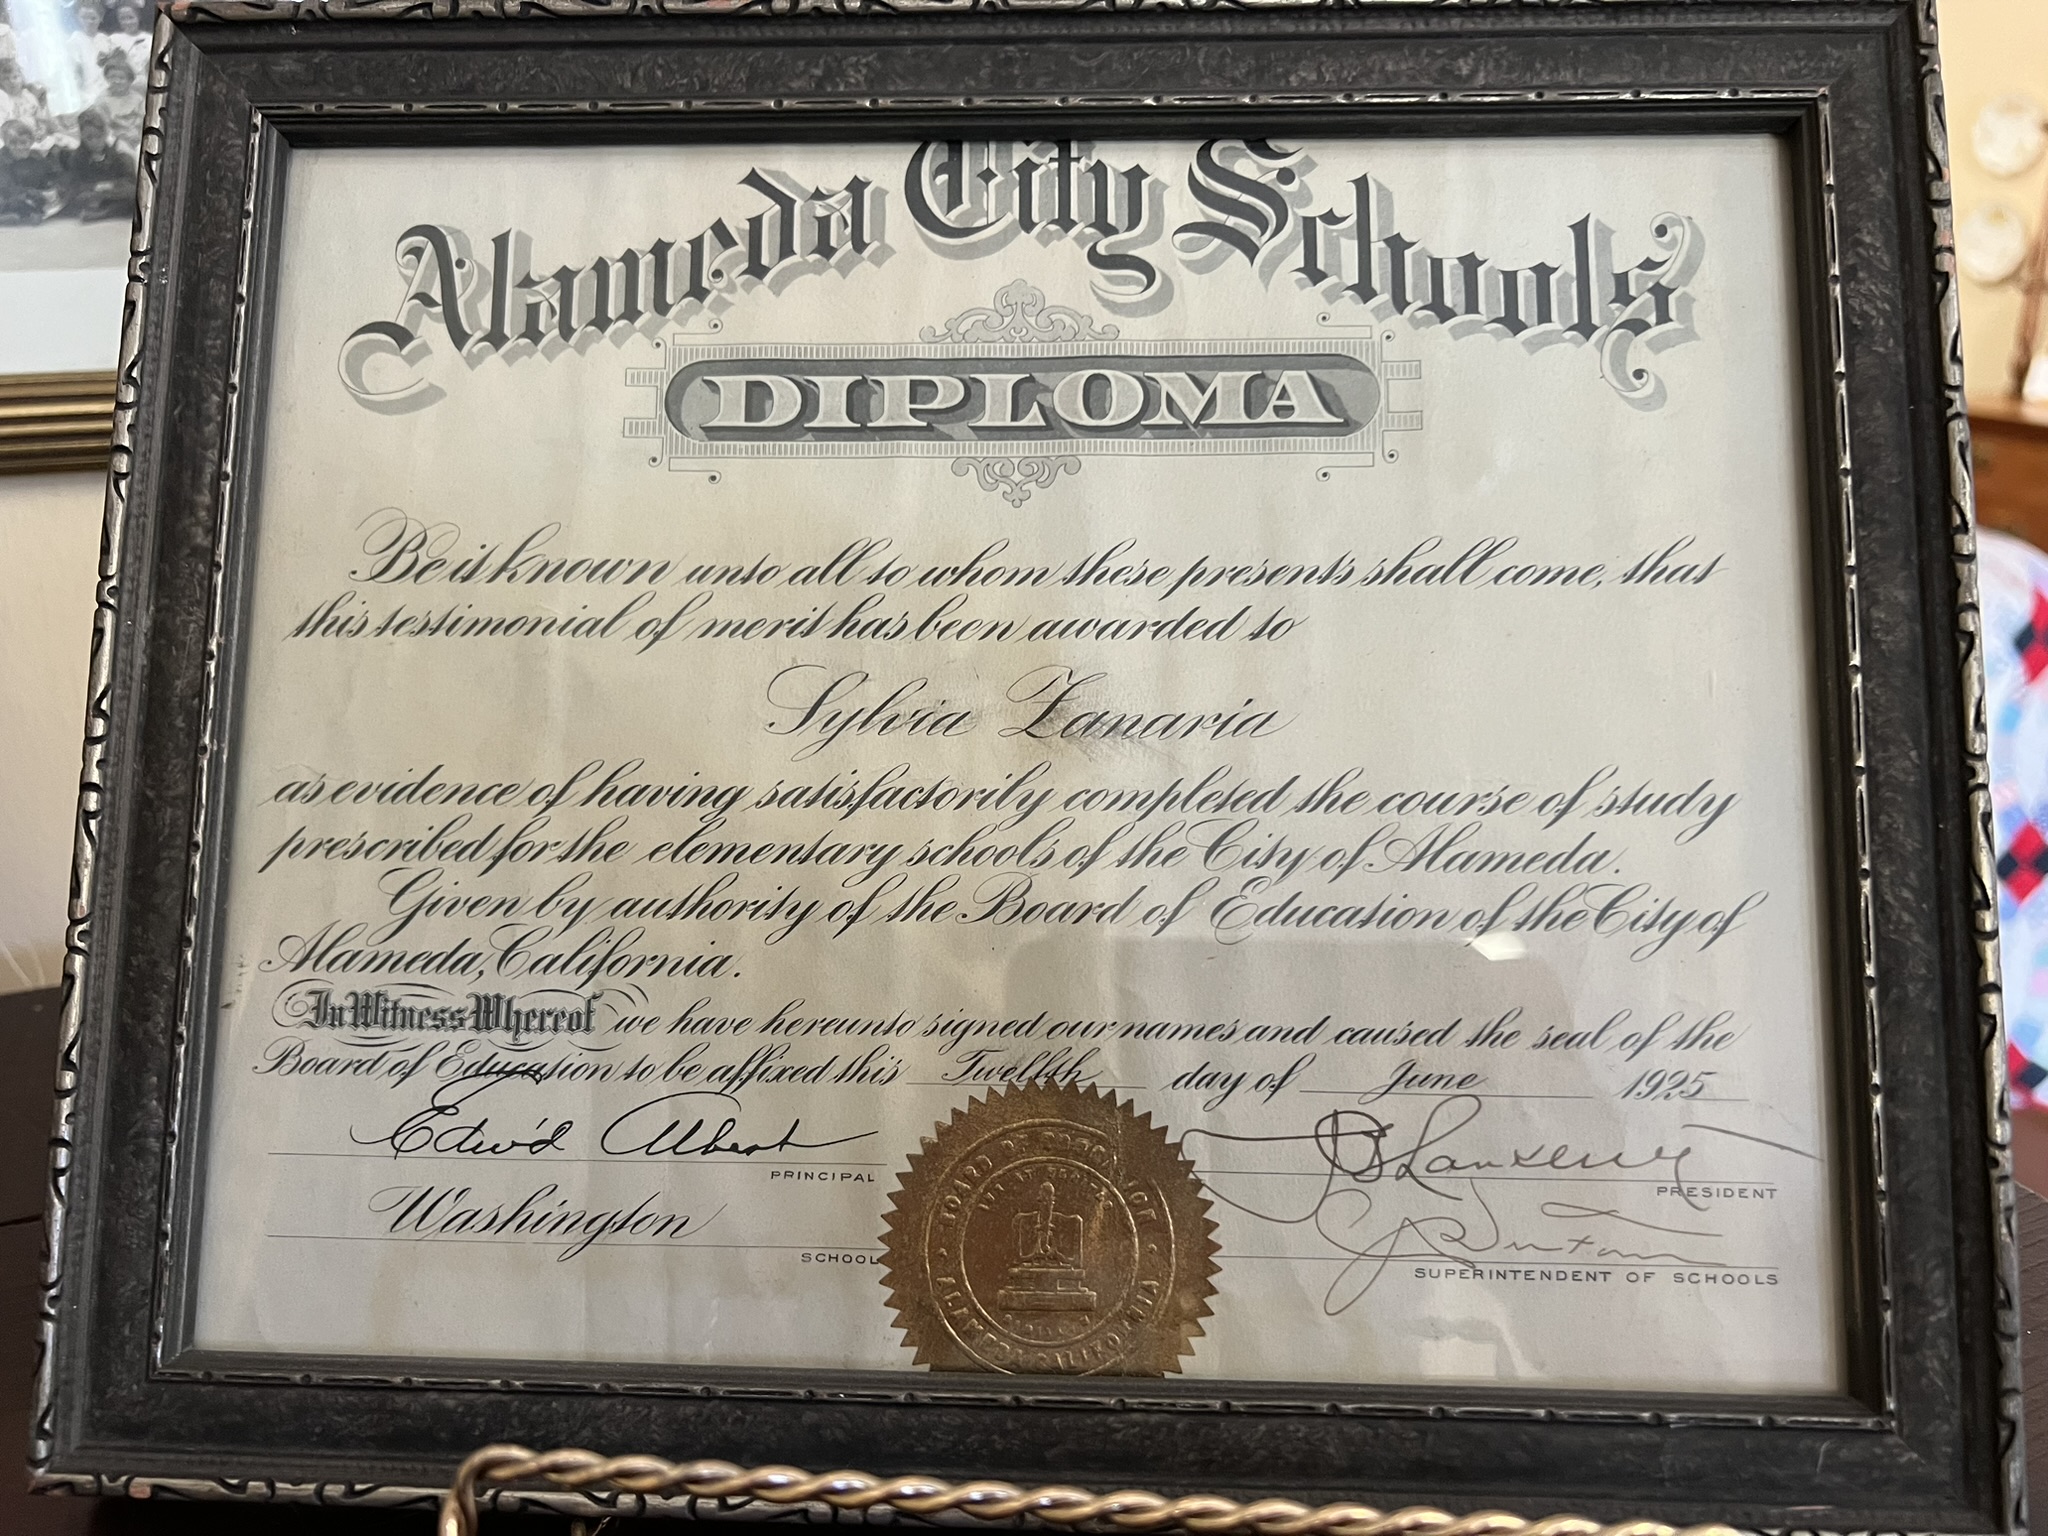 Alameda City Schools
DIPLOMA
Be it known unto all to whom these presents shall come, that
this testimonial of merit has been awarded to
Sylvia Zanaria
as evidence of having satisfactorily completed the course of study
prescribed for the elementary schools of the City of Alameda.
Given by authority of the Board of Education of the City of
Alameda, California.
In Witness Whereof we have hereunto signed our names and caused the seal of the
Board of Education to be affixed this Twelfth day of June 1925
Edw'd Albert
PRINCIPAL
PRESIDENT
Washington
SCHOOL
SUPERINTENDENT OF SCHOOLS
BOARD OF EDUCATION
ALAMEDA CALIFORNIA